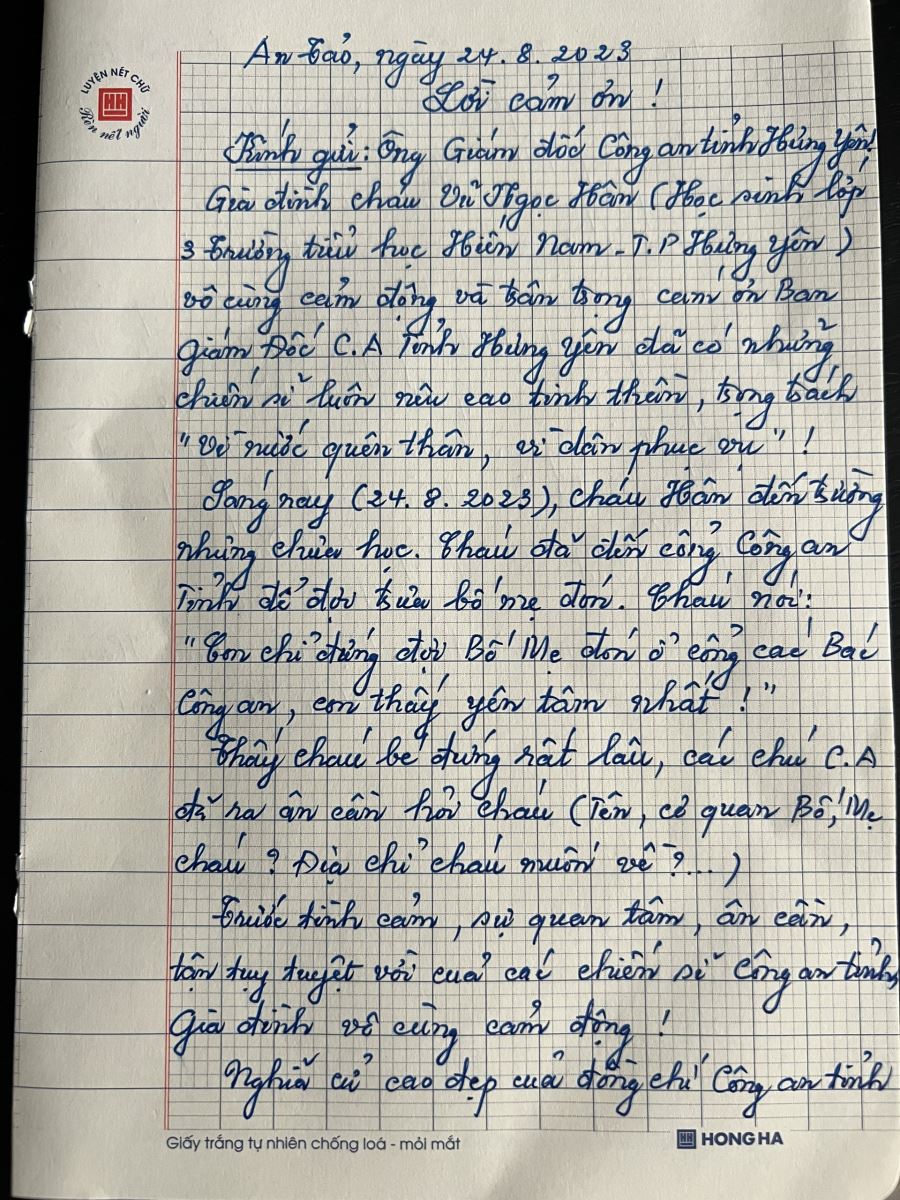 LUYỆN NẾT CHỮ
HH
Rèn nết người
An Tảo, ngày 24.8.2023
Lời cảm ơn !
Kính gửi: Ông Giám đốc Công an tỉnh Hưng Yên!
Gia đình cháu Vũ Ngọc Hân (Học sinh lớp
3 trường tiểu học Hiến Nam - T.P Hưng Yên)
vô cùng cảm động và trân trọng cảm ơn Ban
Giám Đốc C.A Tỉnh Hưng Yên đã có những
chiến sĩ luôn nêu cao tinh thần, trọng trách
"Vì nước quên thân, vì dân phục vụ" !
Sáng nay (24.8.2023), cháu Hân đến trường
nhưng chưa học. Cháu đã đến cổng Công an
Tỉnh để đợi trưa bố mẹ đón. Cháu nói:
"Con chỉ đứng đợi Bố Mẹ đón ở cổng các Bác
Công an, con thấy yên tâm nhất !"
Thấy cháu bé đứng rất lâu, các chú C.A
đã ra ân cần hỏi cháu (Tên, cơ quan Bố, Mẹ
cháu ? Địa chỉ cháu muốn về ?...)
Trước tình cảm, sự quan tâm, ân cần,
tận tụy tuyệt vời của các chiến sĩ Công an tỉnh,
Gia đình vô cùng cảm động !
Nghĩa cử cao đẹp của đồng chí Công an tỉnh
Giấy trắng tự nhiên chống loá - mỏi mắt
HH HONG HA